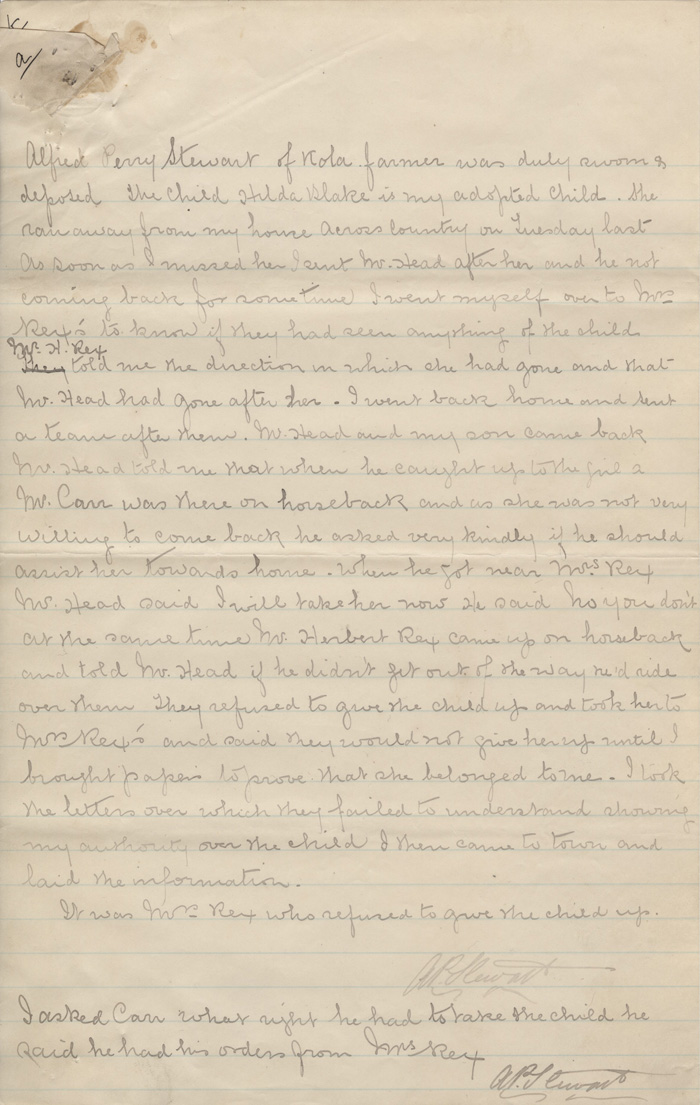 a/
Alfred Perry Stewart of Kola farmer was duly sworn &
deposed The Child Hilda Blake is my adopted Child. She
ran away from my house across country on Tuesday last
As soon as I missed her I sent Mr. Head after her and he not
coming back for sometime I went myself over to Mrs
Rex's to know if they had seen anything of the child
Mr. H. Rex
they told me the direction in which she had gone and that
Mr. Head had gone after her - I went back home and sent
a team after them. Mr. Head and my son came back
Mr. Head told me that when he caught up to the girl a
Mr. Carr was there on horseback and as she was not very
willing to come back he asked very kindly if he should
assist her towards home. When he got near Mrs Rex
Mr. Head said I will take her now He said No you don't
at the same time Mr. Herbert Rex came up on horseback
and told Mr. Head if he didn't get out of the way he'd ride
over them They refused to give the child up and took her to
Mrs Rex's and said they would not give her up until I
brought papers to prove that she belonged to me - I took
the letters over which they failed to understand showing
my authority over the child I then came to town and
laid the information.
It was Mrs Rex who refused to give the child up.
A P Stewart
I asked Carr what right he had to take the child he
said he had his orders from Mrs Rex
A. P. Stewart